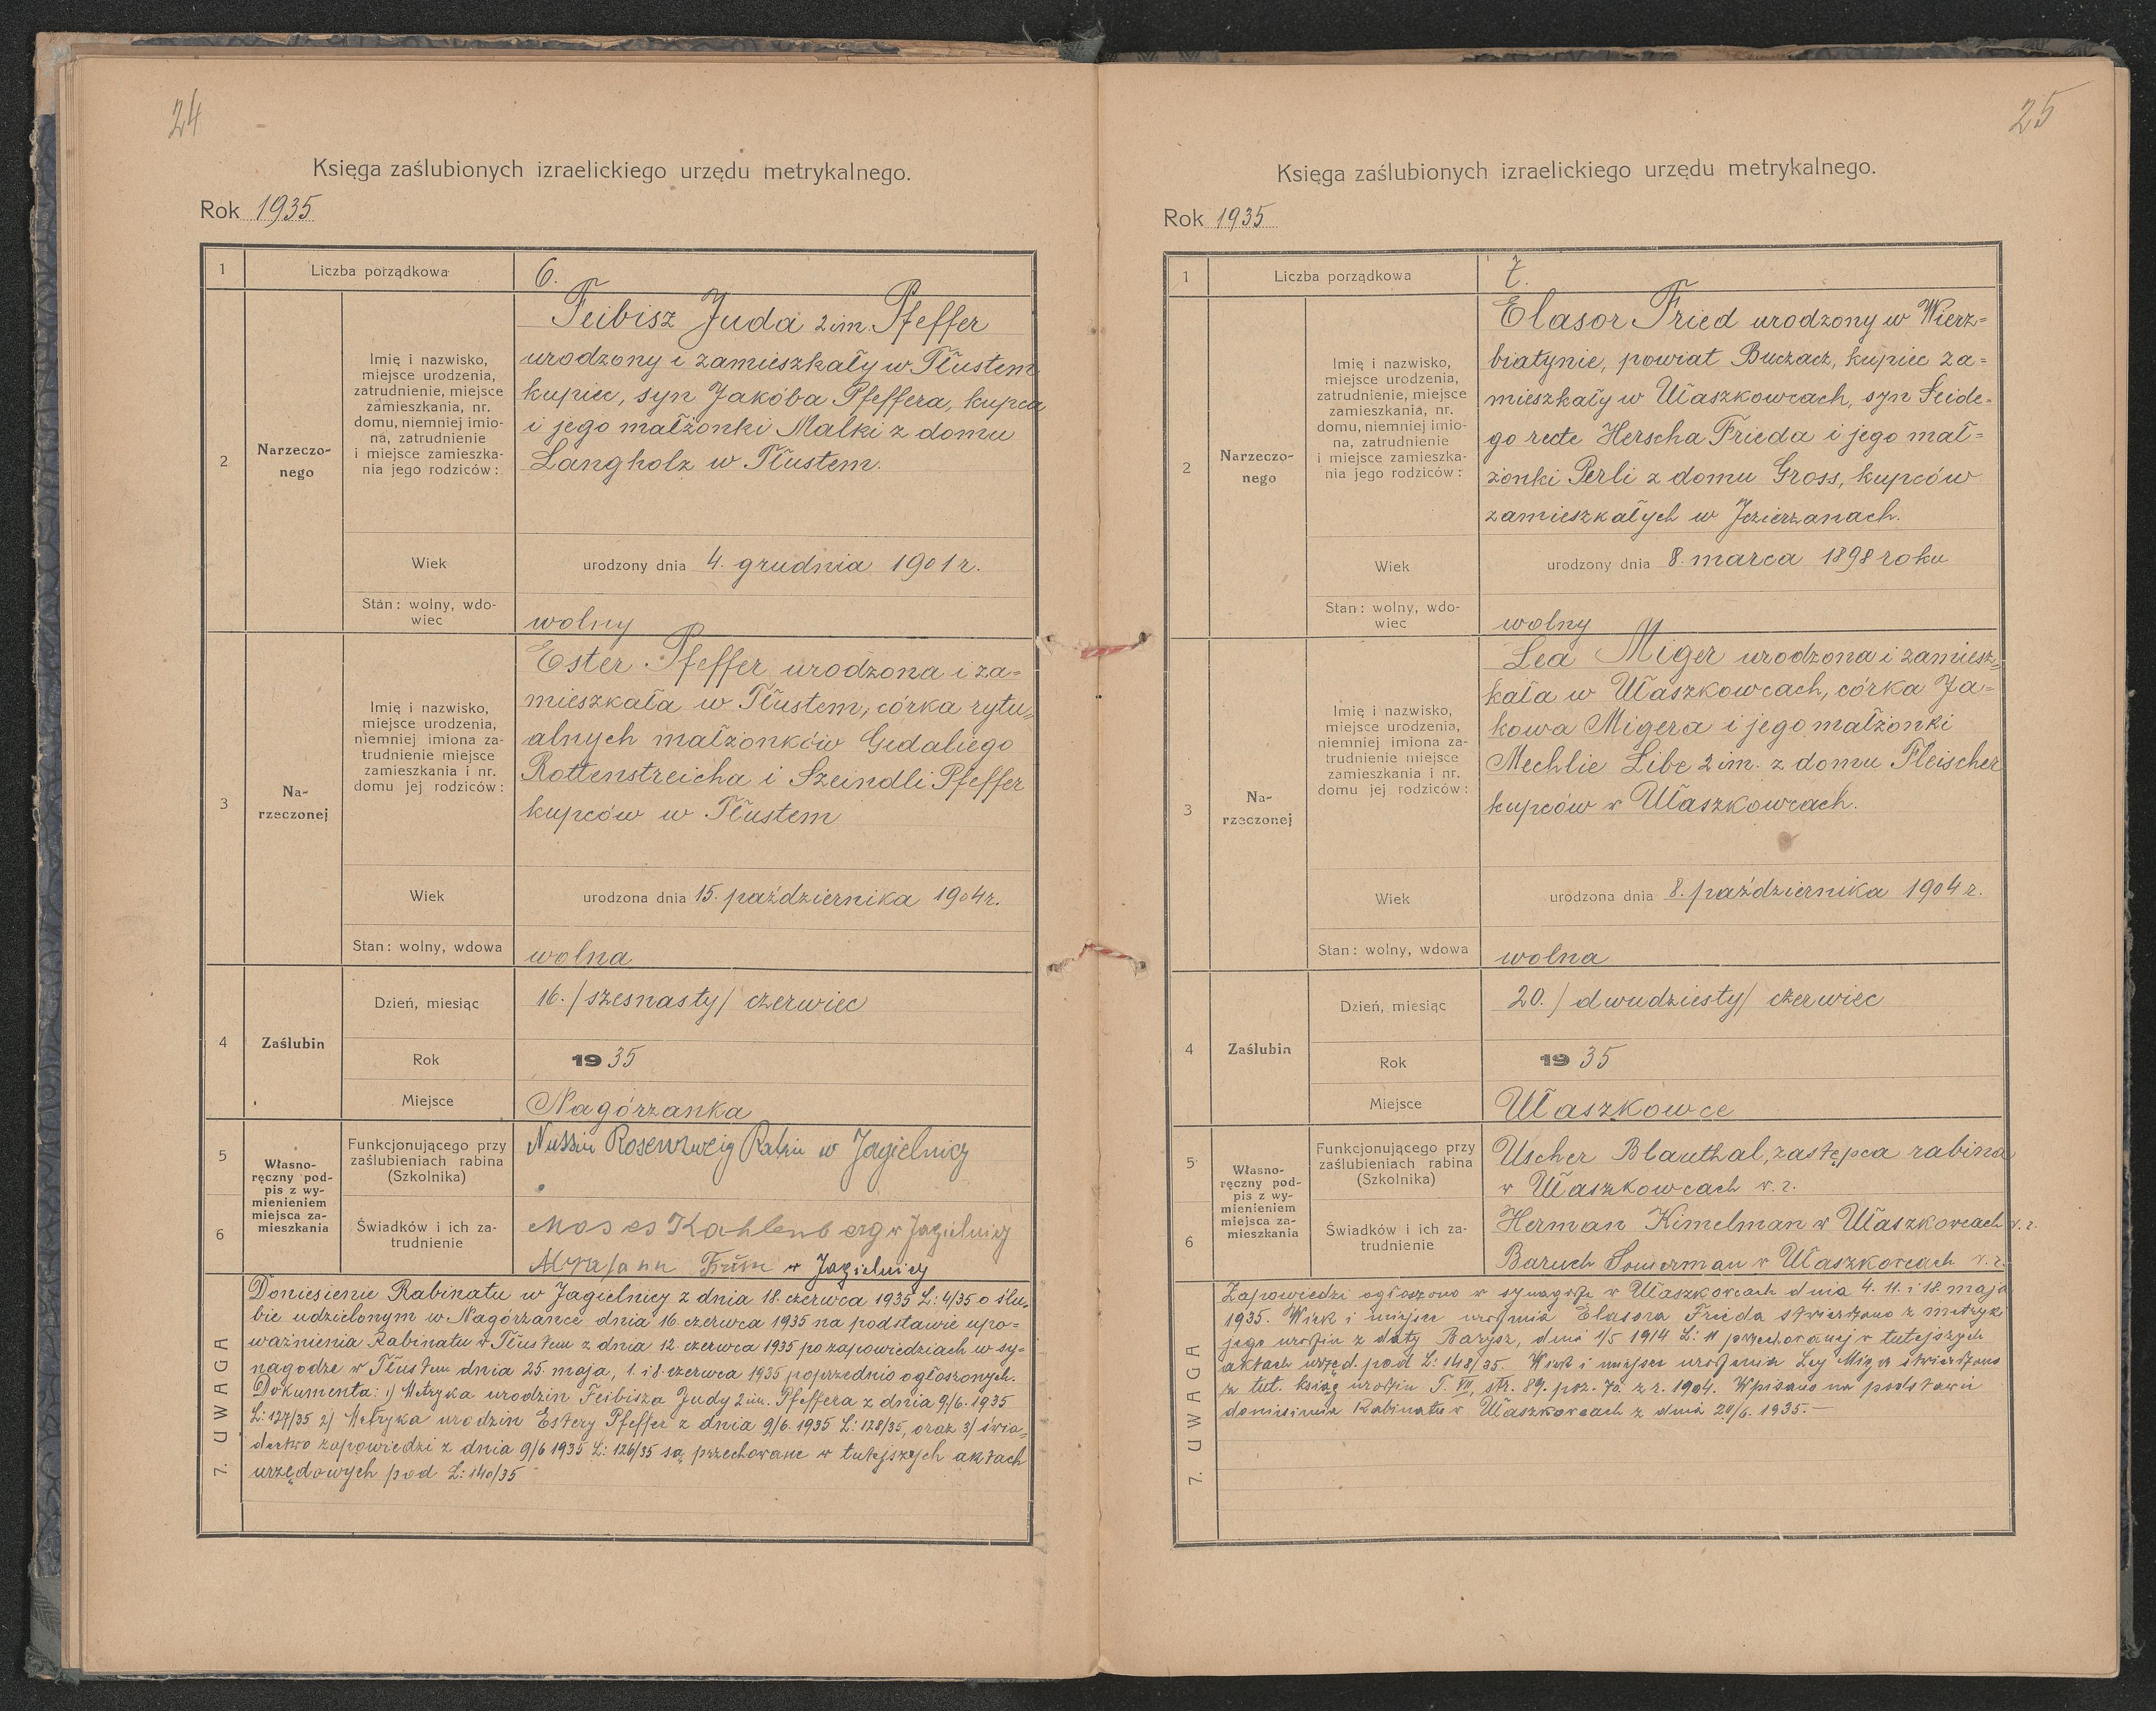 24
Księga zaślubionych izraelickiego urzędu metrykalnego.
Rok 1935
1
Liczba porządkowa
6.
2
Narzeczo-
nego
Imię i nazwisko,
miejsce urodzenia,
zatrudnienie, miejsce
zamieszkania, nr.
domu, niemniej imio-
na, zatrudnienie
i miejsce zamieszka-
nia jego rodziców:
Feibisz Juda 2 im. Pfeffer
urodzony i zamieszkały w Tłustem
kupiec, syn Jakóba Pfeffera, kupca
i jego małżonki Malki z domu
Langholz w Tłustem.
Wiek
urodzony dnia 4. grudnia 1901 r.
Stan: wolny, wdo-
wiec
wolny
3
Na-
rzeczonej
Imię i nazwisko,
miejsce urodzenia,
niemniej imiona za-
trudnienie miejsce
zamieszkania i nr.
domu jej rodziców:
Ester Pfeffer urodzona i za=
mieszkała w Tłustem, córka rytu=
alnych małżonków Gedaliego
Rottenstreicha i Szeindli Pfeffer
kupców w Tłustem
Wiek
urodzona dnia 15. października 1904 r.
Stan: wolny, wdowa
wolna
4
Zaślubin
Dzień, miesiąc
16. /szesnasty/ czerwiec
Rok
1935
Miejsce
Nagórzanka
5
6
Własno-
ręczny pod-
pis z wy-
mienieniem
miejsca za-
mieszkania
Funkcjonującego przy
zaślubieniach rabina
(Szkolnika)
Rosenzweig w Jagielnicy
Świadków i ich za-
trudnienie
Moses Kahlenberg w Jagielnicy
w Jagielnicy
7. UWAGA
Doniesienie Rabinatu w Jagielnicy z dnia 18. czerwca 1935 L: 4/35 o ślu=
bie udzielonym w Nagórzance dnia 16. czerwca 1935 na podstawie upo=
ważnienia Rabinatu w Tłustem z dnia 12. czerwca 1935 po zapowiedziach w sy=
nagodze w Tłustem dnia 25. maja, 1. i 8. czerwca 1935 poprzednio ogłoszonych.
Dokumenta: 1) Metryka urodzin Feibisza Judy 2 im. Pfeffera z dnia 9/6. 1935
L: 127/35 2) Metryka urodzin Estery Pfeffer z dnia 9/6. 1935 L: 128/35, oraz 3) świa=
dectwo zapowiedzi z dnia 9/6 1935 L: 126/35 są przechowane w tutejszych aktach
urzędowych pod L: 140/35
25
Księga zaślubionych izraelickiego urzędu metrykalnego.
Rok 1935
1
Liczba porządkowa
7.
2
Narzeczo-
nego
Imię i nazwisko,
miejsce urodzenia,
zatrudnienie, miejsce
zamieszkania, nr.
domu, niemniej imio-
na, zatrudnienie
i miejsce zamieszka-
nia jego rodziców:
Elasor Fried urodzony w Wierz=
biatynie, powiat Buczacz, kupiec za=
mieszkały w Ułaszkowcach, syn Seide=
go recte Herscha Frieda i jego mał=
żonki Perli z domu Gross, kupców
zamieszkałych w Jezierzanach.
Wiek
urodzony dnia 8. marca 1898 roku
Stan: wolny, wdo-
wiec
wolny
3
Na-
rzeczonej
Imię i nazwisko,
miejsce urodzenia,
niemniej imiona za-
trudnienie miejsce
zamieszkania i nr.
domu jej rodziców:
Lea Miger urodzona i zamiesz=
kała w Ułaszkowcach, córka Ja=
kowa Migera i jego małżonki
Mechlie Libe 2 im. z domu Fleischer
kupców w Ułaszkowcach.
Wiek
urodzona dnia 8. października 1904 r.
Stan: wolny, wdowa
wolna
4
Zaślubin
Dzień, miesiąc
20. /dwudziesty/ czerwiec
Rok
1935
Miejsce
Ułaszkowce
5
6
Własno-
ręczny pod-
pis z wy-
mienieniem
miejsca za-
mieszkania
Funkcjonującego przy
zaślubieniach rabina
(Szkolnika)
Uscher Blauthal, zastępca rabina
w Ułaszkowcach w. r.
Świadków i ich za-
trudnienie
Herman Kimelman w Ułaszkowcach w. r.
Baruch w Ułaszkowcach w. r.
7. UWAGA
Zapowiedzi ogłoszono w synagodze w Ułaszkowcach dnia 4. 11. i 18. maja
1935. Wiek i miejsce urodzenia Elasora Frieda stwierdzono z metryki
jego urodzin z daty Barysz, dnia 1/5 1914 L: 11 przechowanej w tutejszych
aktach urzęd. pod L: 148/35. Wiek i miejsce urodzenia Ley Miger stwierdzono
z tut. ksiąg urodzin T. VII, str. 89. poz. 70. z r. 1904. Wpisano na podstawie
doniesienia Rabinatu w Ułaszkowcach z dnia 20/6. 1935.—